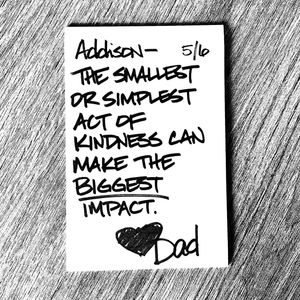 Addison— 5/6
THE SMALLEST
OR SIMPLEST
ACT OF
KINDNESS CAN
MAKE THE
BIGGEST
IMPACT.
Dad